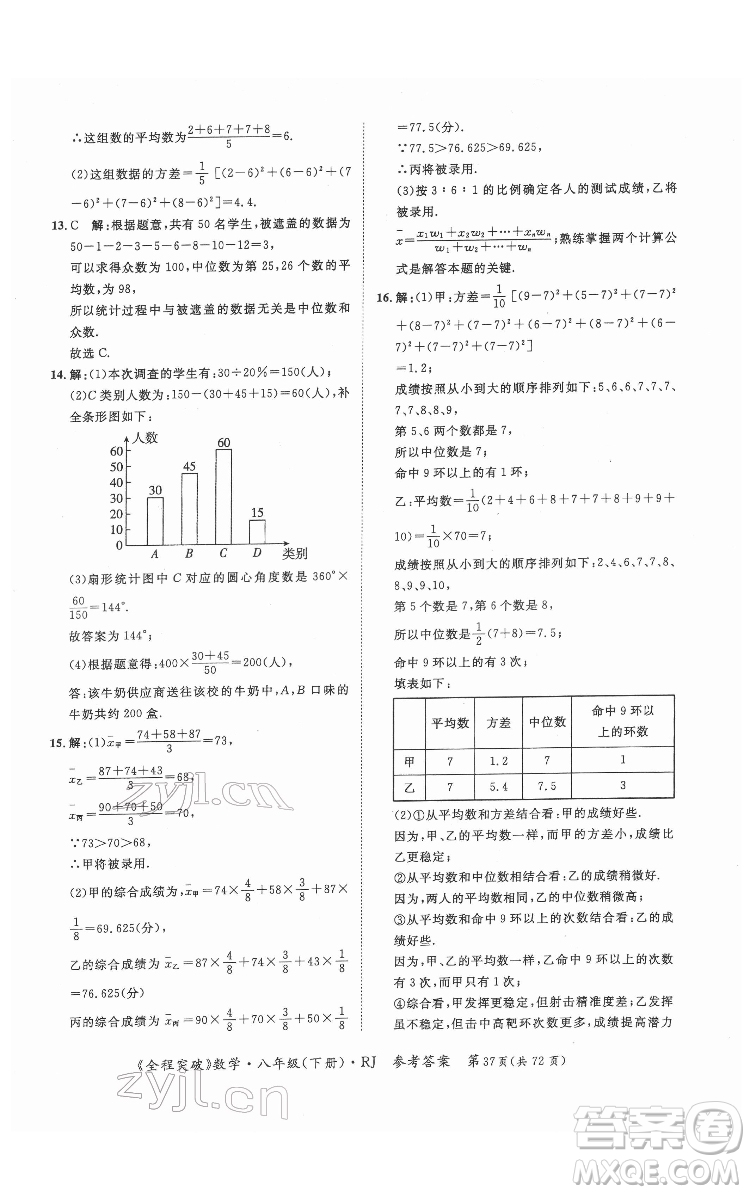 ∴这组数的平均数为\frac{2+6+7+7+8}{5}=6.
(2)这组数据的方差=\frac{1}{5}[(2-6)²+(6-6)²+(7
-6)²+(7-6)²+(8-6)²]=4.4.
13.C 解:根据题意,共有 50 名学生,被遮盖的数据为
50-1-2-3-6-8-9-6-12=3,
可以求得众数为 100,中位数为第 25,26 个数的平
均数,为 98,
所以统计过程中与被遮盖的数据无关是中位数和
众数.
故选 C.
14.解:(1)本次调查的学生有:30÷20%=150(人);
(2)C 类别人数为:150-(30+45+15)=60(人),补
全条形图如下:
人数
60
50
40
30
20
10
0
30
45
60
15
A B C D 类别
(3)扇形统计图中 C 对应的圆心角度数是 360°×
\frac{60}{150}=144°.
故答案为 144°;
(4)根据题意得:400×\frac{30+45}{50}=200(人),
答:该牛奶供应商送往该校的牛奶中,A、B 口味的
牛奶共约 200 盒.
15.解:(1)x̄甲=\frac{74+58+87}{3}=73,
x̄乙=\frac{87+74+43}{3}=68,
x̄丙=\frac{90+70+50}{3}=70,
∵73>70>68,
∴甲将被录用.
(2)甲的综合成绩为 x̄甲=74×\frac{4}{8}+58×\frac{3}{8}+87×
\frac{1}{8}=69.625(分),
乙的综合成绩为 x̄乙=87×\frac{4}{8}+74×\frac{3}{8}+43×\frac{1}{8}
=76.625(分),
丙的综合成绩为 x̄丙=90×\frac{4}{8}+70×\frac{3}{8}+50×\frac{1}{8}
=77.5(分).
∵77.5>76.625>69.625,
∴丙将被录用.
(3)按 3:6:1 的比例确定各人的测试成绩,乙将
被录用.
x̄=\frac{x₁w₁+x₂w₂+…+xₙwₙ}{w₁+w₂+…+wₙ};熟练掌握两个计算公
式是解答本题的关键.
16.解:(1)甲:方差=\frac{1}{10}[(9-7)²+(5-7)²+(7-7)²
+(8-7)²+(7-7)²+(6-7)²+(8-7)²+(6-7)²
+(7-7)²+(7-7)²]
=1.2;
成绩按照从小到大的顺序排列如下:5、6、6、7、7、
7、7、8、8、9,
第 5、6 两个数都是 7,
所以中位数是 7;
命中 9 环以上的 1 环;
乙:平均数=\frac{1}{10}(2+4+6+8+7+7+8+9+9+
10)=\frac{1}{10}×70=7;
成绩按照从小到大的顺序排列如下:2、4、6、7、7、
8、8、9、9、10,
第 5 个数是 7,第 6 个数是 8,
所以中位数是\frac{1}{2}(7+8)=7.5;
命中 9 环以上的有 3 次;
填表如下:
平均数 方差 中位数 命中 9 环以上的环数
甲 7 1.2 7 1
乙 7 5.4 7.5 3
(2)①从平均数和方差结合看:甲的成绩好些.
因为,甲、乙的平均数一样,而甲的方差小,成绩比
乙更稳定;
②从平均数和中位数结合看:乙的成绩稍微好.
因为,两人的平均数一样,但乙的中位数稍微高;
③从平均数和命中 9 环以上的次数结合看:乙的成
绩好些.
因为,甲、乙的平均数一样,乙命中 9 环以上的可
能性更大.
④综合看,甲发挥更稳定,但射击精准度差;乙发挥
虽然不稳定,但击中高靶环次数更多,成绩提高潜力
《全程突破》数学·八年级(下册)·RJ 参考答案 第37页(共 72 页)
zyjl.cn
zyjl.cn
答案圈
MXQE.COM